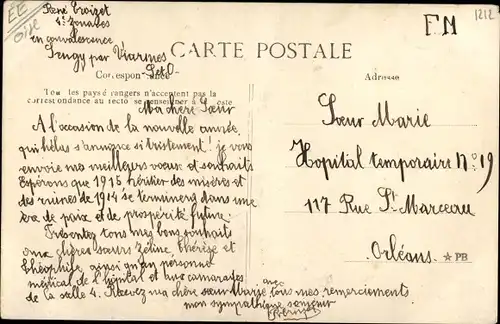 EE
Oise
René Croizet
4e Zouaves
en convalescence
par Viarmes
S et O
FM
1212
CARTE POSTALE
Correspondance
Tous les pays étrangers n'acceptent pas la
correspondance au recto se renseigner à la Poste
Adresse
Ma chère Sœur
A l'occasion de la nouvelle année,
qui hélas s'annonce si tristement! je vous
envoie mes meilleurs vœux et souhaits
Espérons que 1915 héritier des misères et
des ruines de 1914 se terminera dans une
ère de paix et de prospérité future.
Présentez tous mes bons souhaits
aux chères sœurs Zoline, Thérèse et
Théophile ainsi qu'au personnel
médical de l'hôpital et aux camarades
de la salle 4. Recevez ma chère sœur Marie avec tous mes remerciements
mon sympathique souvenir
Sœur Marie
Hopital temporaire No. 19
117 Rue St Marceau
Orléans.
★ PB